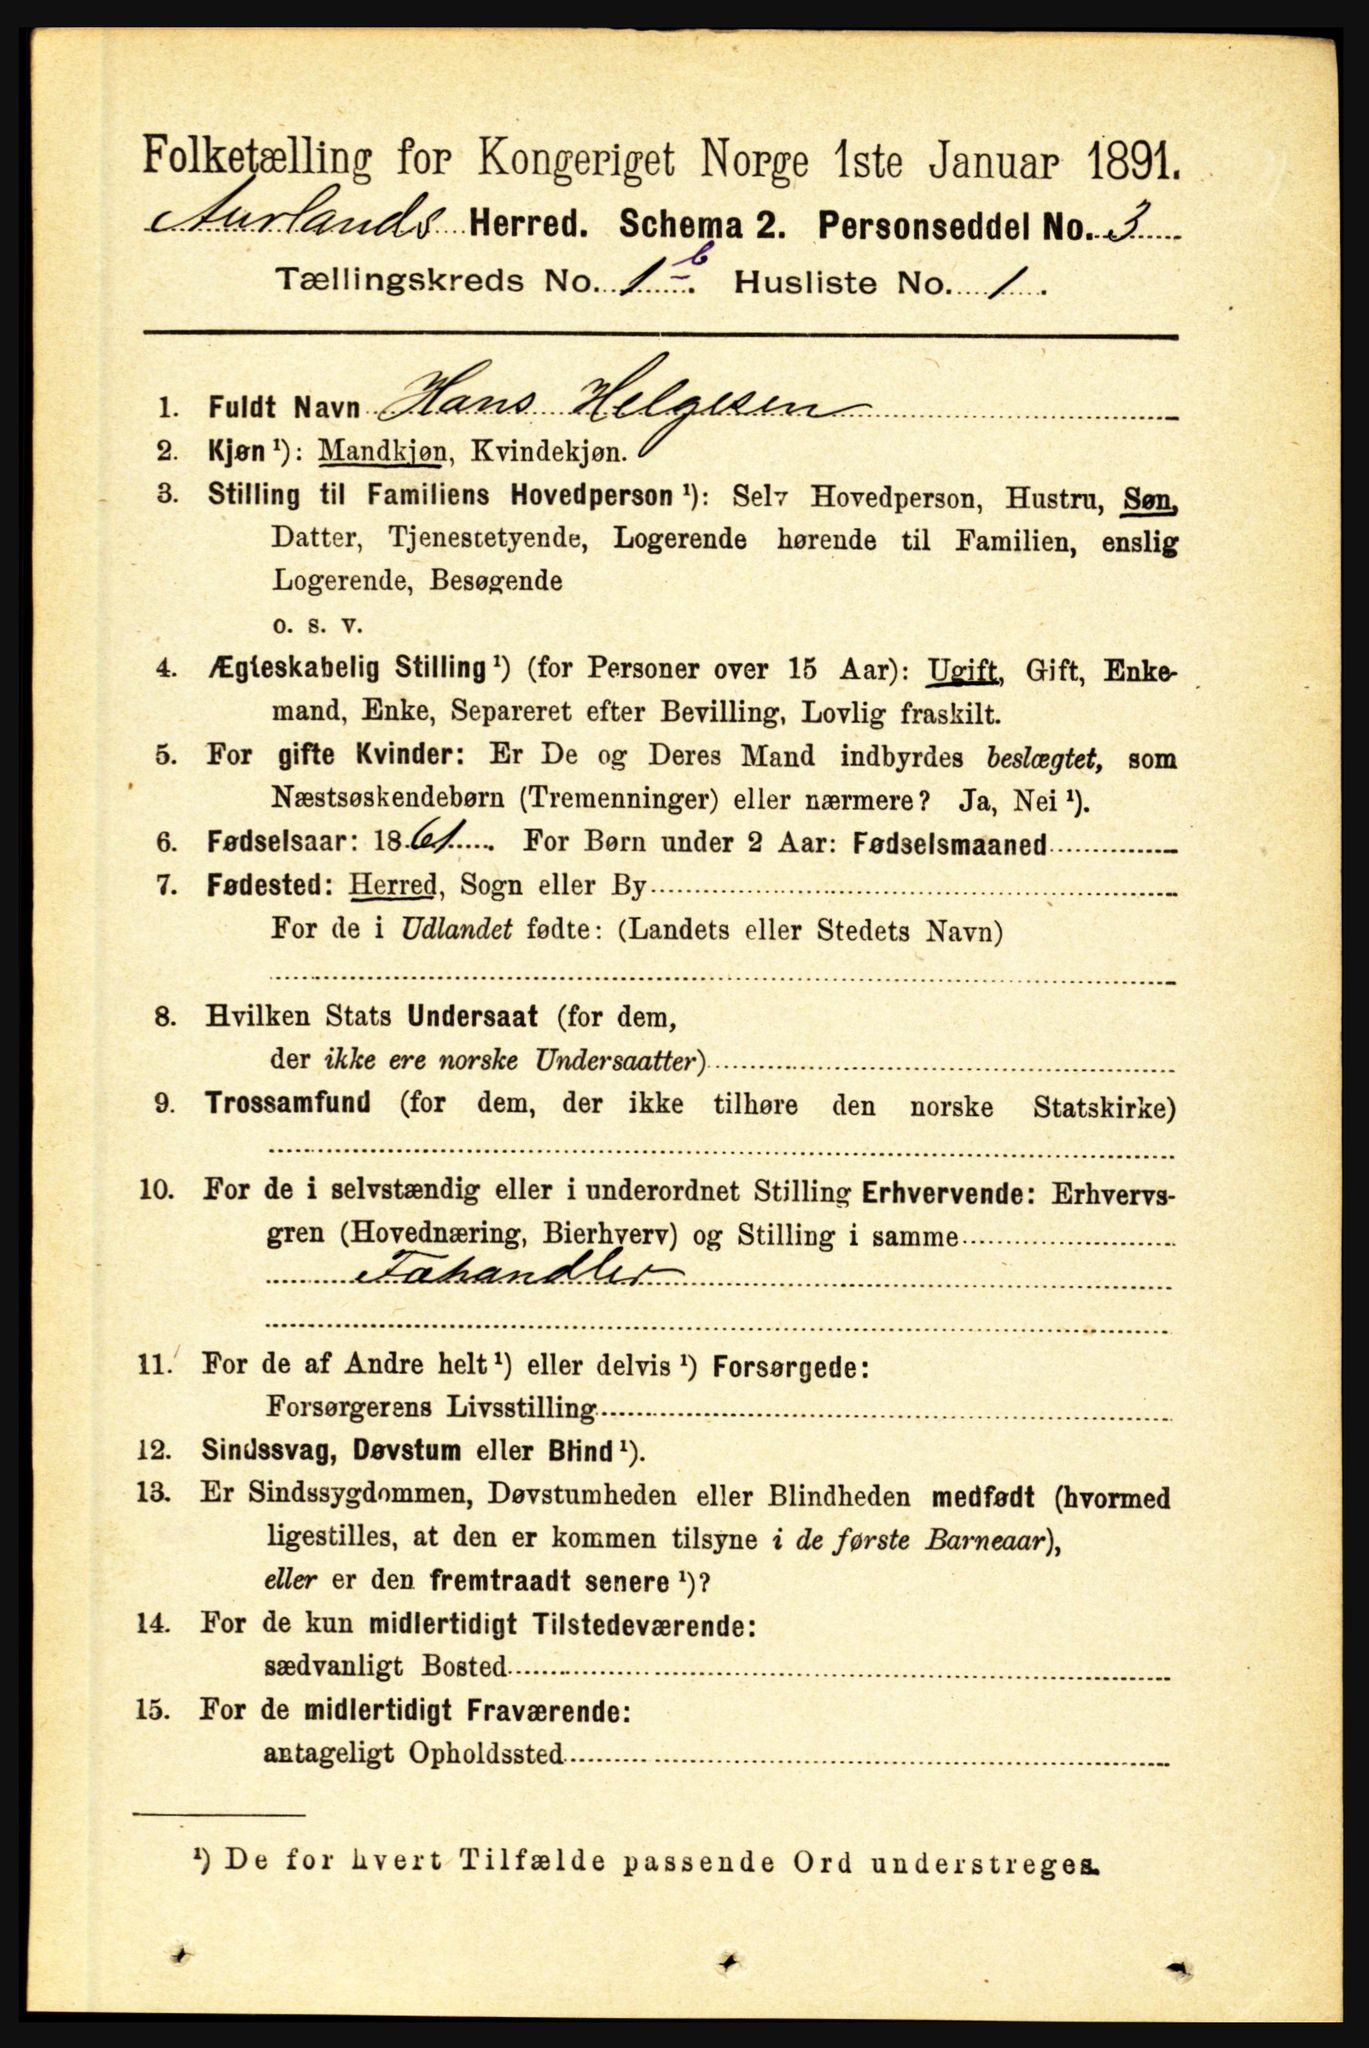 Folketælling for Kongeriget Norge 1ste Januar 1891.
Aurlands Herred. Schema 2. Personseddel No. 3
Tællingskreds No. 1 b. Husliste No. 1.
1. Fuldt Navn Hans Helgesen
2. Kjøn ¹): Mandkjøn, Kvindekjøn.
3. Stilling til Familiens Hovedperson ¹): Selv Hovedperson, Hustru, Søn,
Datter, Tjenestetyende, Logerende hørende til Familien, enslig
Logerende, Besøgende
o. s. v.
4. Ægteskabelig Stilling ¹) (for Personer over 15 Aar): Ugift, Gift, Enke-
mand, Enke, Separeret efter Bevilling, Lovlig fraskilt.
5. For gifte Kvinder: Er De og Deres Mand indbyrdes beslægtet, som
Næstsøskendebørn (Tremenninger) eller nærmere? Ja, Nei ¹).
6. Fødselsaar: 1861. For Børn under 2 Aar: Fødselsmaaned
7. Fødested: Herred, Sogn eller By
For de i Udlandet fødte: (Landets eller Stedets Navn)
8. Hvilken Stats Undersaat (for dem,
der ikke ere norske Undersaatter)
9. Trossamfund (for dem, der ikke tilhøre den norske Statskirke)
10. For de i selvstændig eller i underordnet Stilling Erhvervende: Erhvervs-
gren (Hovednæring, Bierhverv) og Stilling i samme
Fæhandler
11. For de af Andre helt ¹) eller delvis ¹) Forsørgede:
Forsørgerens Livsstilling
12. Sindssvag, Døvstum eller Blind ¹).
13. Er Sindssygdommen, Døvstumheden eller Blindheden medfødt (hvormed
ligestilles, at den er kommen tilsyne i de første Barneaar),
eller er den fremtraadt senere ¹)?
14. For de kun midlertidigt Tilstedeværende:
sædvanligt Bosted
15. For de midlertidigt Fraværende:
antageligt Opholdssted
¹) De for hvert Tilfælde passende Ord understreges.